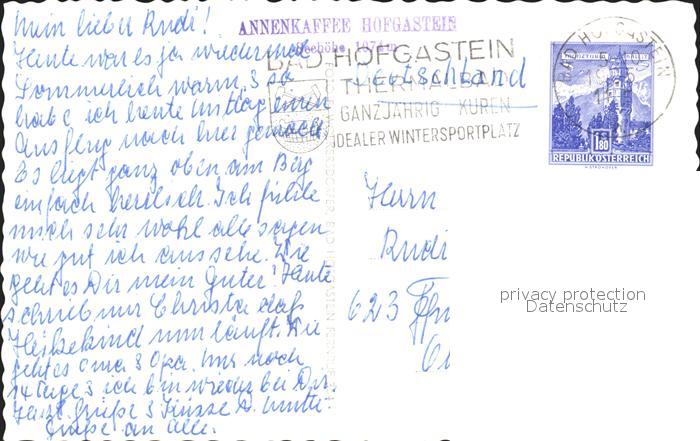 Mein lieber Rudi!
Heute war es ja wiedermal
Sommerlich warm, so
habe ich heute Mittag einen
Ausflug nach hier gemacht
Es liegt ganz oben am Berg
einfach herrlich. Ich fühle
mich sehr wohl alle sagen
wie gut ich aussehe. Wie
geht es Dir mein Guter! Heute
schrieb mir Christa daß
Heikekind nun läuft. Wie
geht es Oma & Opa. Nur noch
14 Tage & ich bin wieder bei Dir.
Herzl. Grüße & Küsse D. Mutti
Grüße an alle.
ANNENKAFFEE HOFGASTEIN
Seehöhe
BAD HOFGASTEIN
THERMALBAD
GANZJÄHRIG KUREN
IDEALER WINTERSPORTPLATZ
Deutschland
BAD HOFGASTEIN
1.80
REPUBLIK ÖSTERREICH
Herrn
Rudi
623
privacy protection
Datenschutz